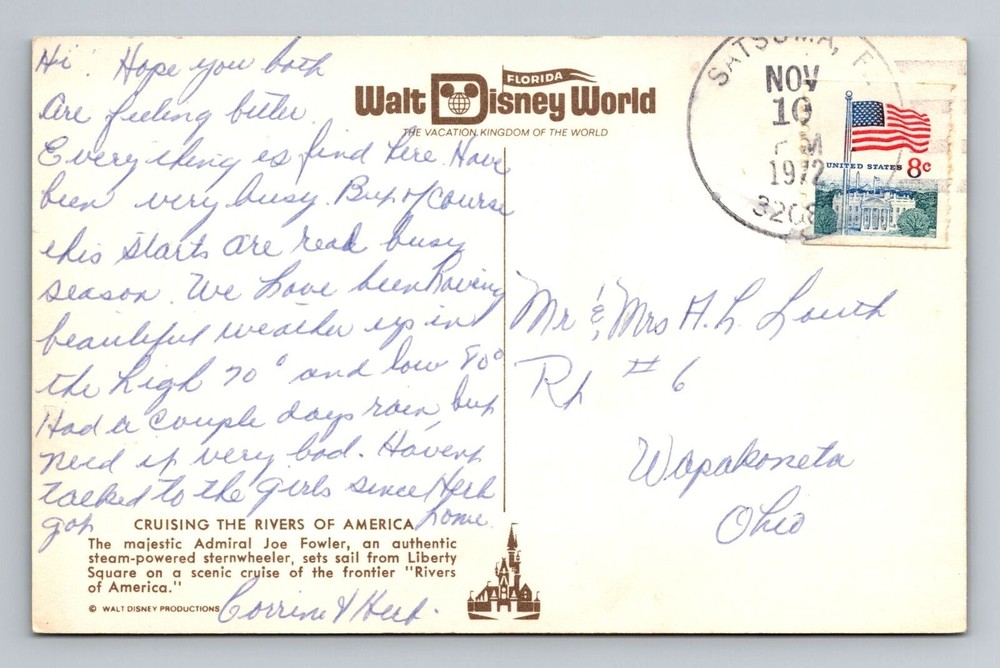 Hi. Hope you both
are feeling better.
Everything is find here. Have
been very busy. But of course
this starts are real busy
season. We have been having
beautiful weather up in
the high 70° and low 80°
Had a couple days rain, but
need it very bad. Havent
talked to the girls since Herb
got home.
Corrine & Herb.
FLORIDA
Walt Disney World
THE VACATION KINGDOM OF THE WORLD
CRUISING THE RIVERS OF AMERICA
The majestic Admiral Joe Fowler, an authentic
steam-powered sternwheeler, sets sail from Liberty
Square on a scenic cruise of the frontier "Rivers
of America."
© WALT DISNEY PRODUCTIONS
SATSUMA, F
NOV
10
PM
1972
UNITED STATES 8c
Mr & Mrs H. L. Louth
Rt #6
Wapakoneta
Ohio